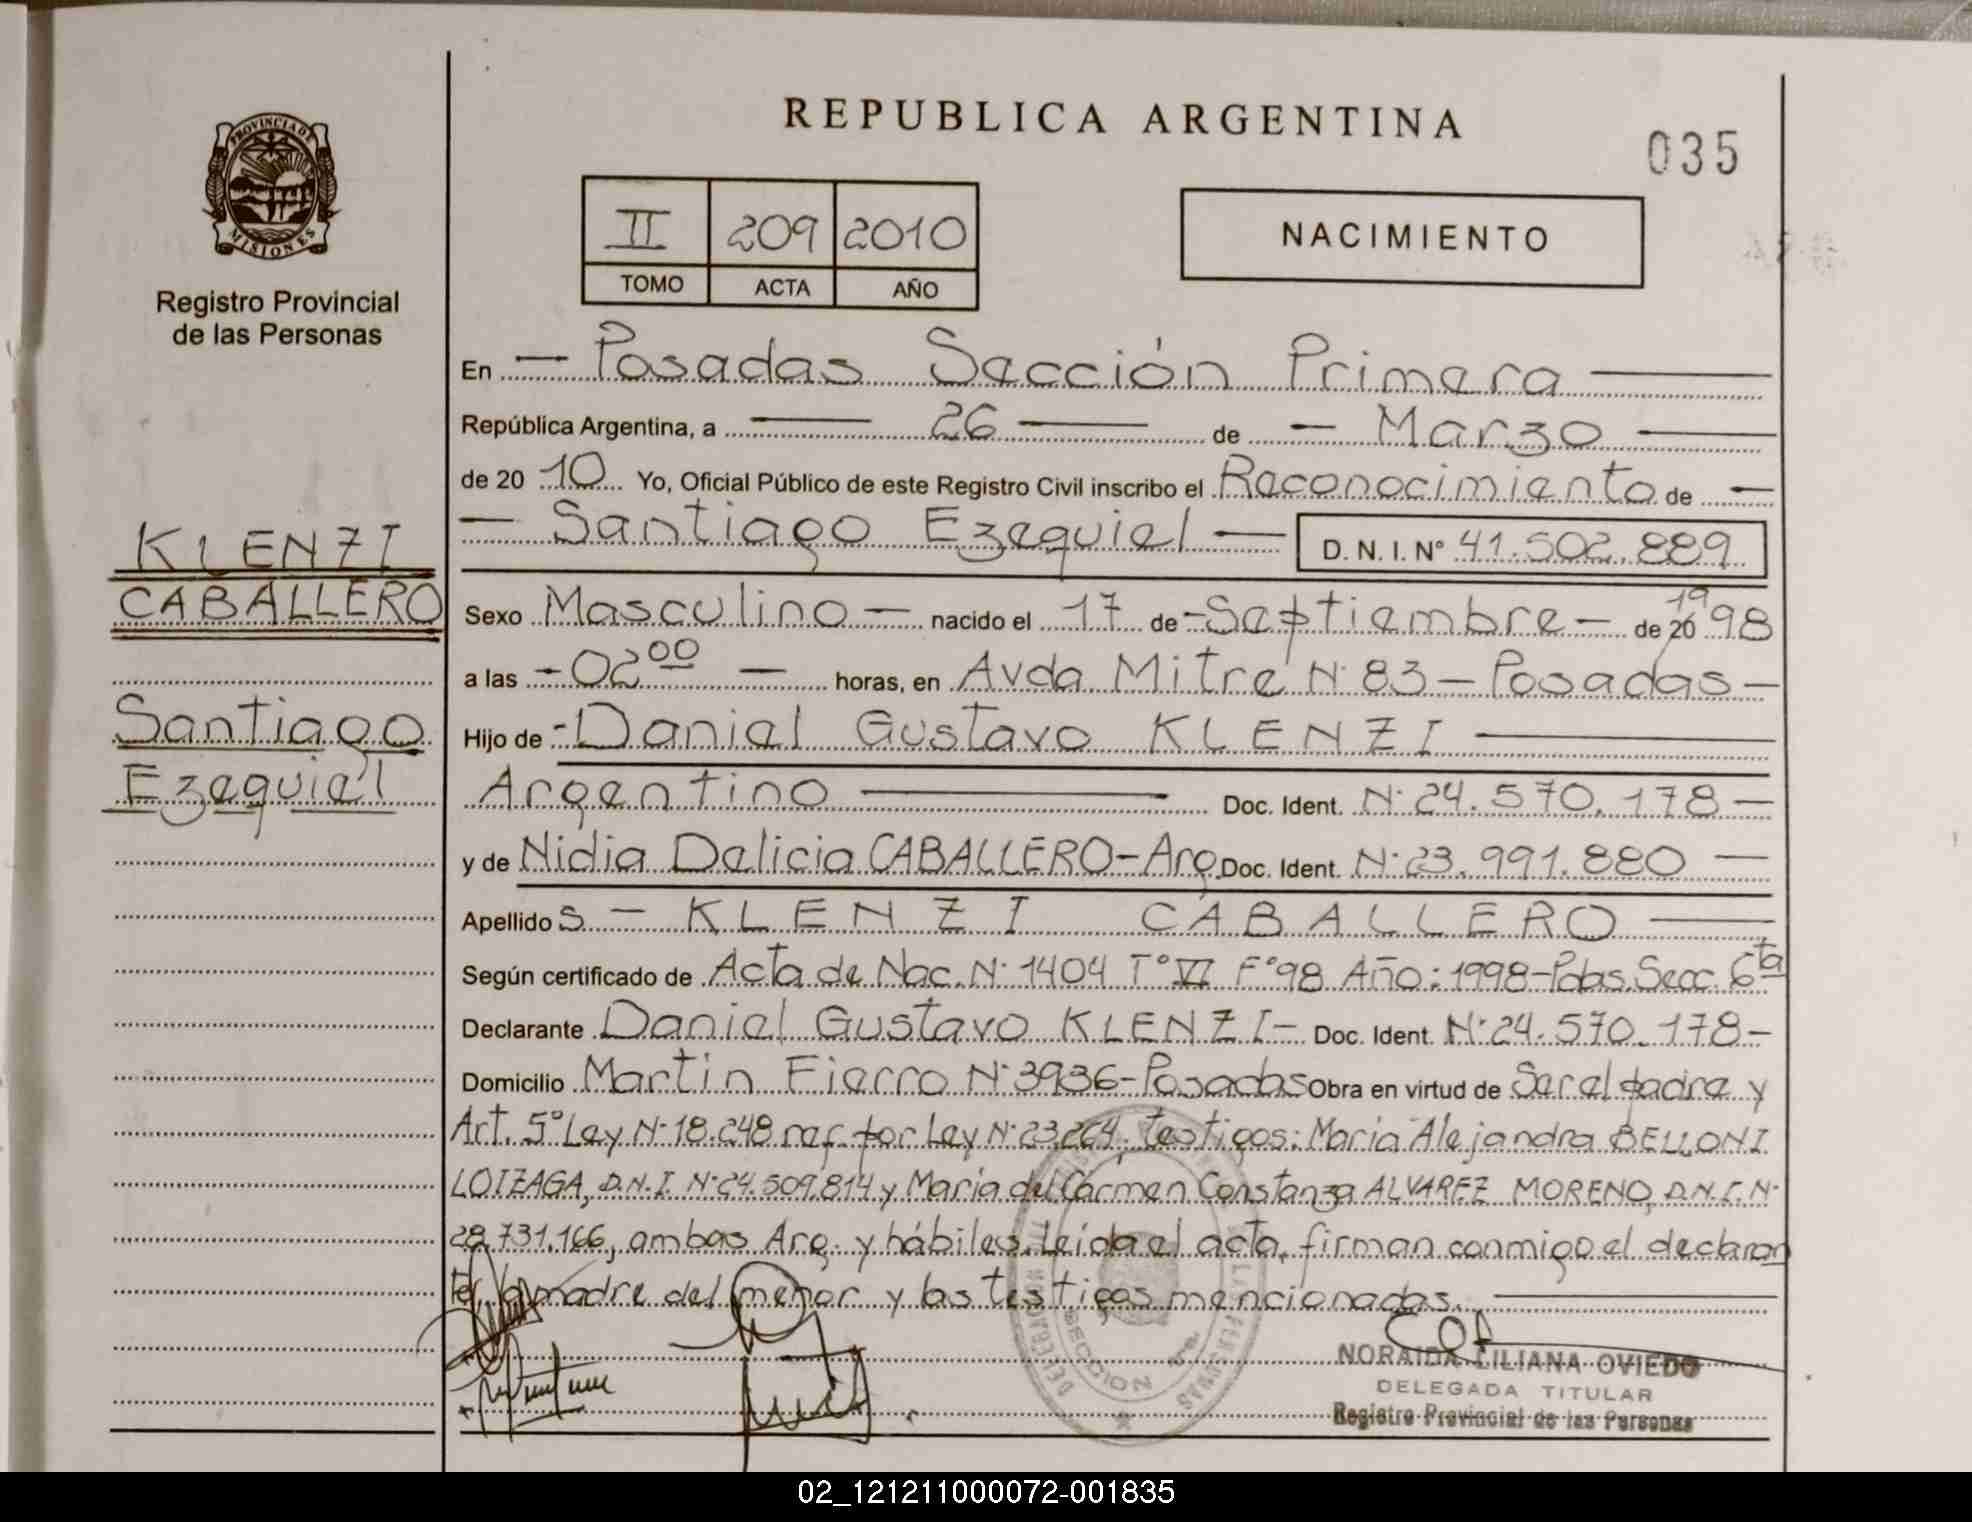 REPUBLICA ARGENTINA
035
PROVINCIA DE
MISIONES
Registro Provincial
de las Personas
II 209 2010
TOMO ACTA AÑO
NACIMIENTO
En — Posadas Sección Primera —
República Argentina, a — 26 — de — Marzo —
de 20 10 Yo, Oficial Público de este Registro Civil inscribo el Reconocimiento de —
— Santiago Ezequiel — D. N. I. N° 41.502.889
KLENZI
CABALLERO
Santiago
Ezequiel
Sexo Masculino — nacido el 17 de - Septiembre — de 20 19 98
a las - 02 00 — horas, en Avda Mitre N° 83 — Posadas —
Hijo de - Daniel Gustavo KLENZI —
Argentino — Doc. Ident. N° 24.570.178 —
y de Nidia Delicia CABALLERO - Arg. Doc. Ident. N° 23.991.880 —
Apellido s — KLENZI CABALLERO —
Según certificado de Acta de Nac. N° 1404 T° VI F° 98 Año: 1998 - Pdas. Secc. 6ta
Declarante Daniel Gustavo KLENZI - Doc. Ident. N° 24.570.178 -
Domicilio Martin Fierro N° 3936 - Posadas Obra en virtud de Ser el padre y
Art. 5° Ley N° 18.248 ref. por Ley N° 23.264. testigos: Maria Alejandra BELLONI
LOIZAGA, D.N.I. N° 24.509.814 y María del Cármen Constanza ALVAREZ MORENO, D.N.I. N°
28.731.166, ambas Arg. y hábiles. Leida el acta, firman conmigo el declaran
te, la madre del menor y las testigos mencionadas. —
SECCION 1ra.
NORAIDA LILIANA OVIEDO
DELEGADA TITULAR
Registro Provincial de las Personas
02_121211000072-001835